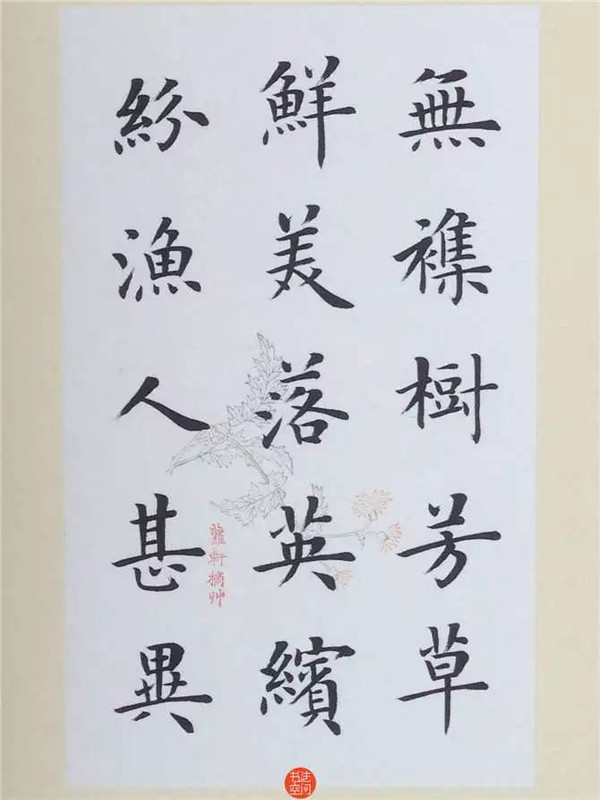 無襍樹芳草
鮮美落英繽
紛漁人甚異
軒摘艸
书法空间